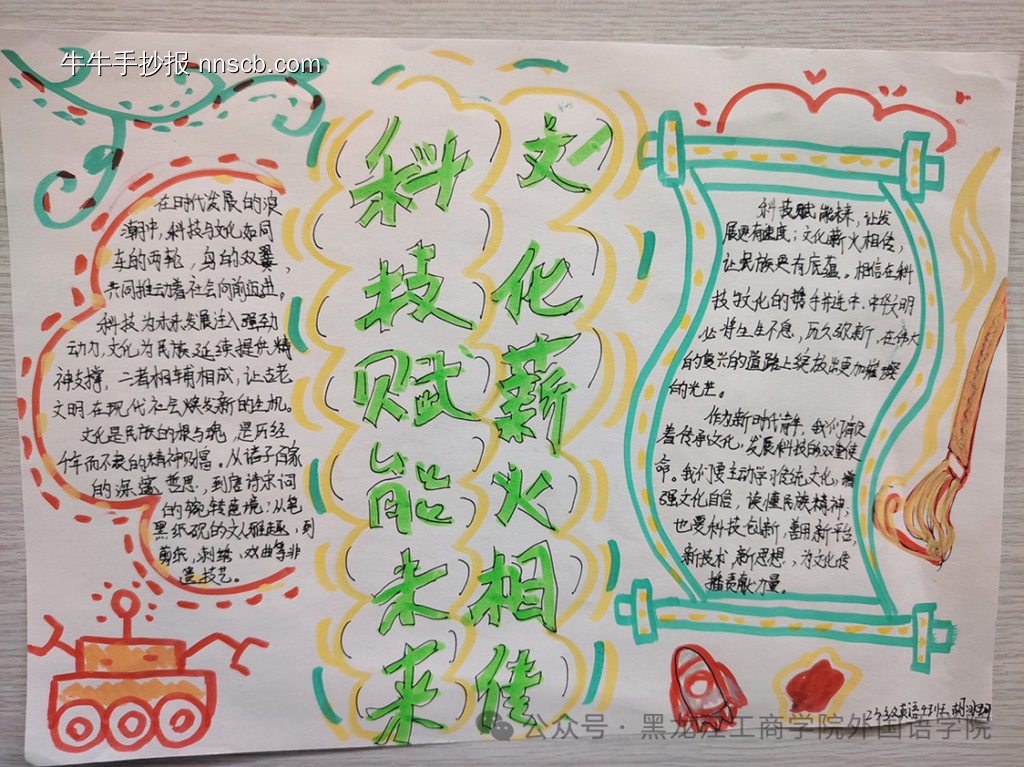 牛牛手抄报 nnscb.com
科技赋能未来
文化薪火相传
在时代发展的浪
潮中,科技与文化如同
车的两轮,鸟的双翼,
共同推动着社会向前迈进。
科技为未来发展注入强劲
动力,文化为民族延续提供精
神支撑,二者相辅相成,让古老
文明在现代社会焕发新的生机。
文化是民族的根与魂,是历经
千年而不衰的精神财富。从诸子百家
的深邃哲思,到唐诗宋词
的婉转意境;从笔
墨纸砚的文人雅趣,到
剪纸,刺绣,戏曲等非
遗技艺。
科技赋能未来,让发
展更有速度;文化薪火相传,
让民族更有底蕴。相信在科
技与文化的携手并进中,中华文明
必将生生不息,历久弥新,在伟大
的复兴的道路上绽放出更加璀璨
的光芒。
作为新时代青年,我们肩负
着传承文化,发展科技的双重使
命。我们要主动学习传统文化,增
强文化自信,读懂民族精神,
也要科技创新,善用新平台,
新技术,新思想,为文化传
播贡献力量。
公众号·黑龙江工商学院外国语学院